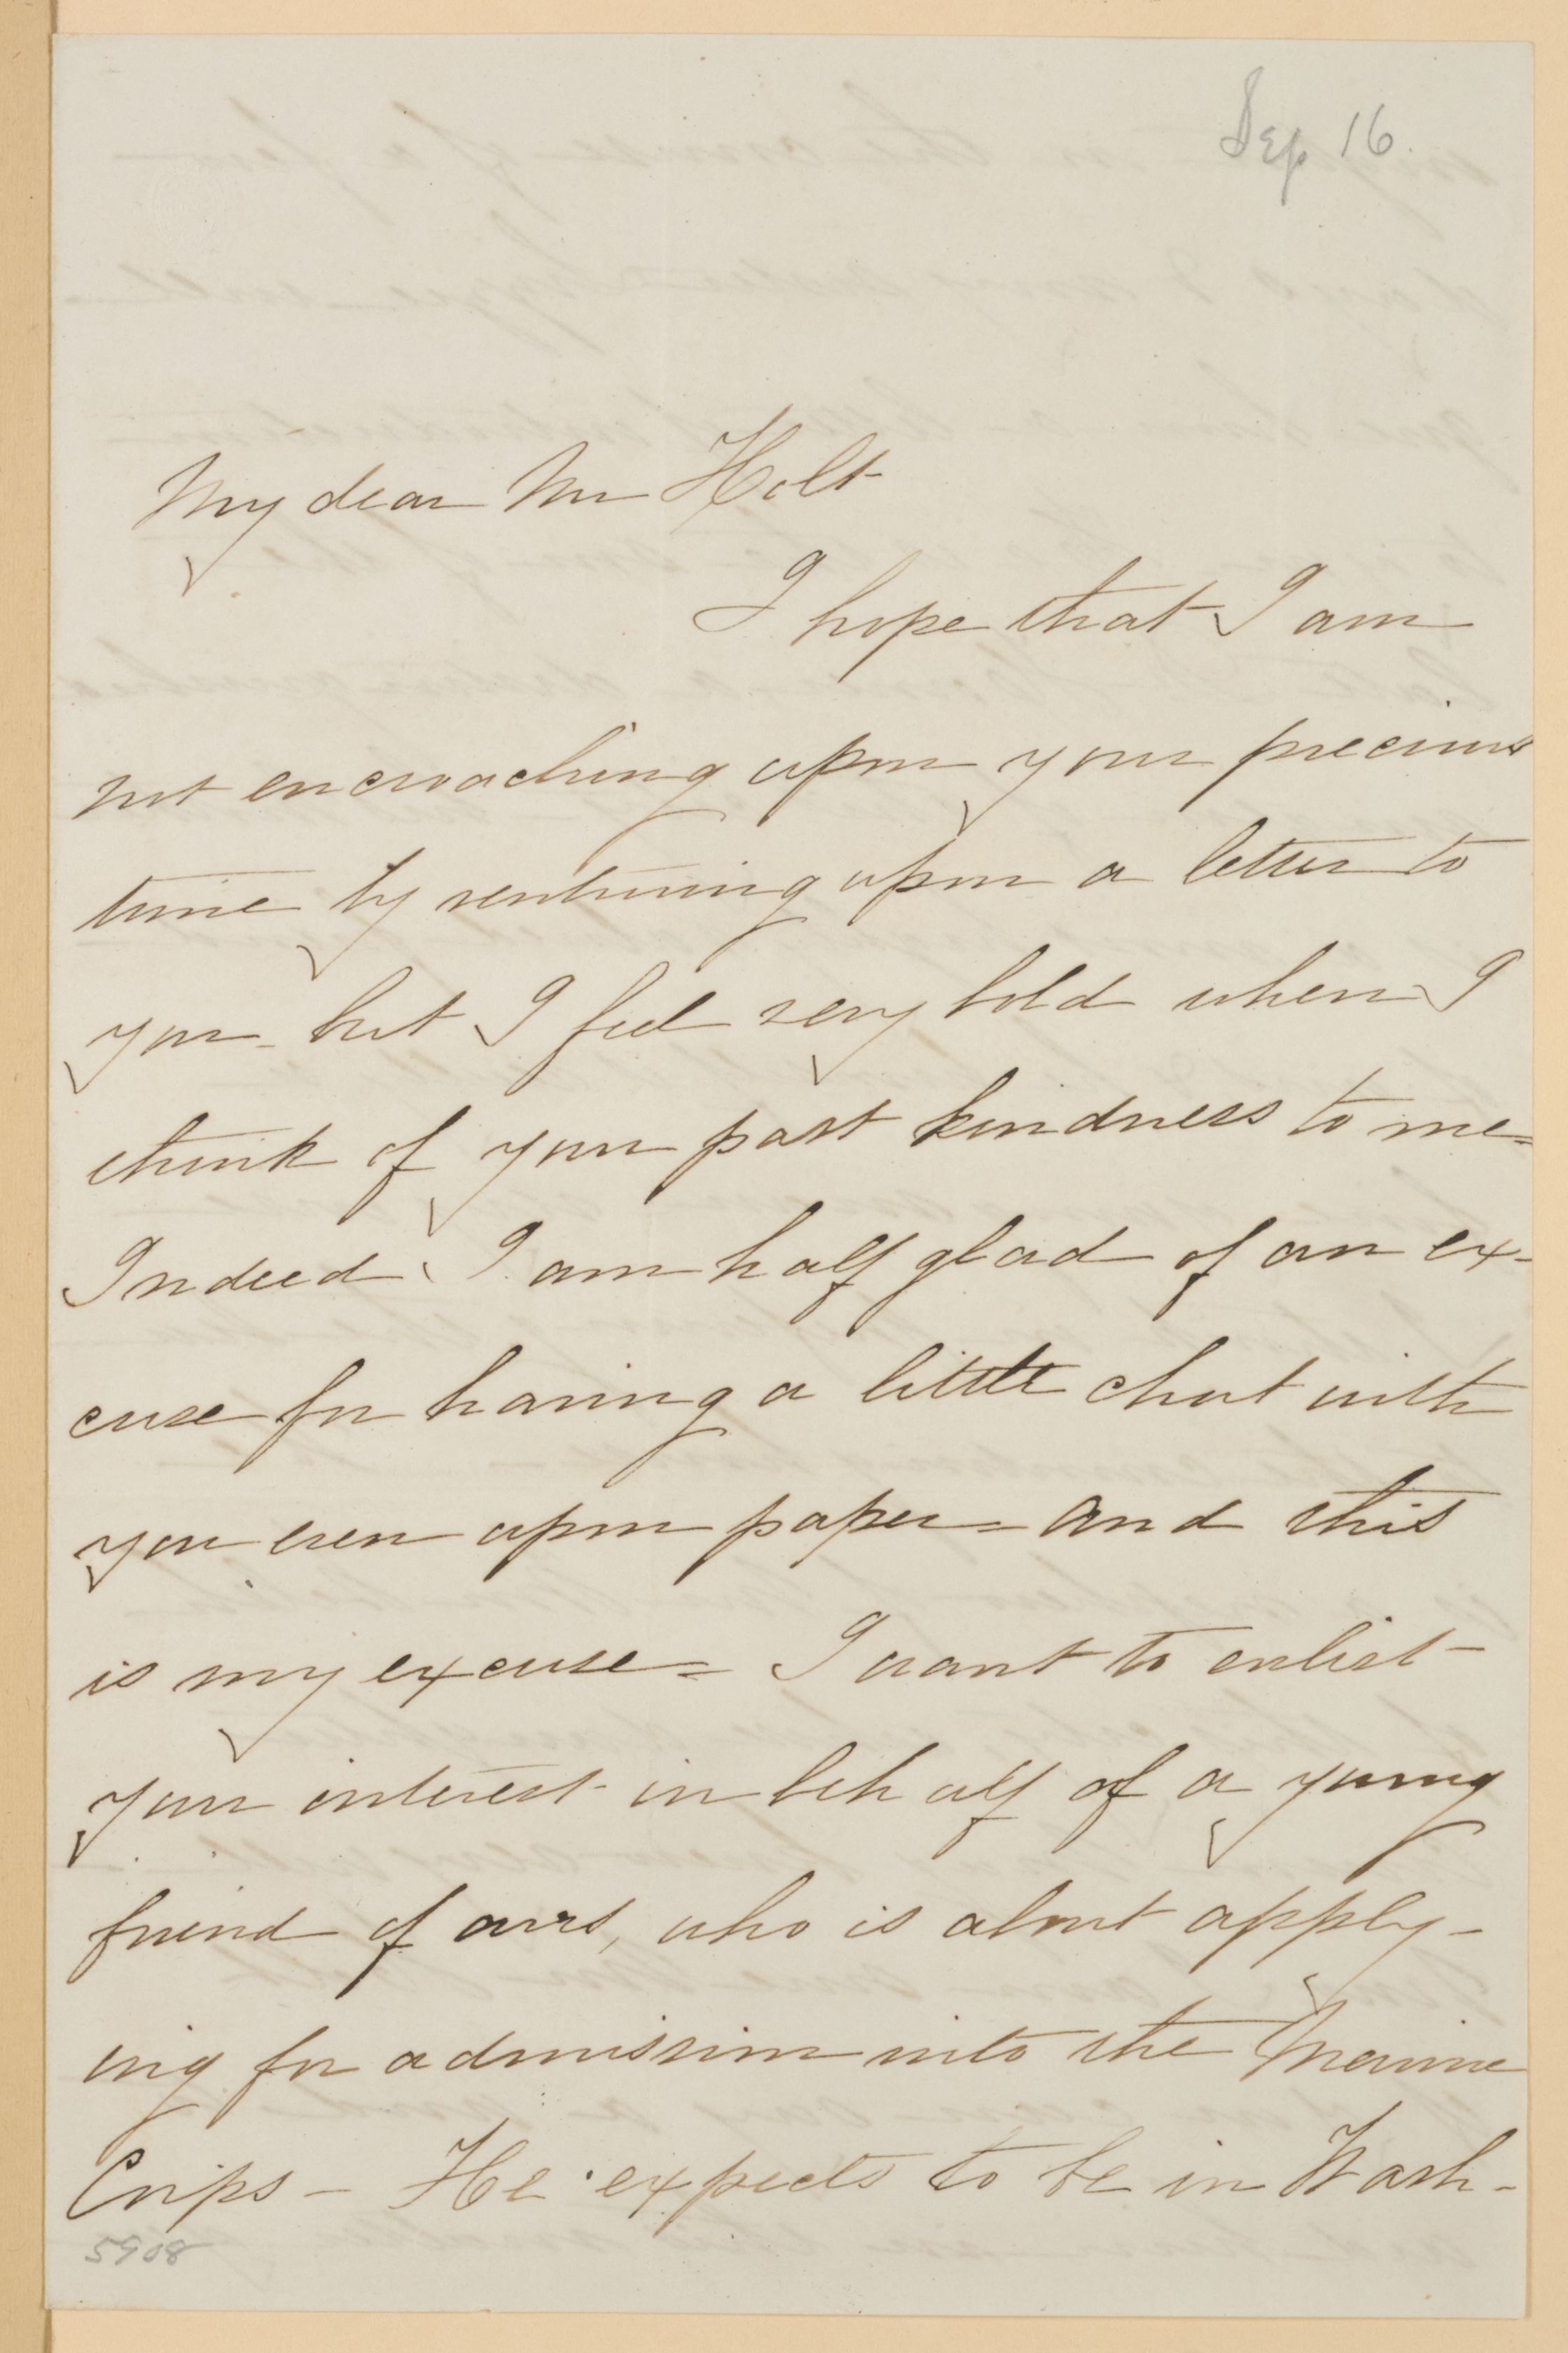 Sep 16.
My dear Mr Holt
I hope that I am
not encroaching upon your precious
time by venturing upon a letter to
you - but I feel very bold when I
think of your past kindness to me =
Indeed, I am half glad of an ex-
cuse for having a little chat with
you even upon paper = and this
is my excuse = I want to enlist
your interest in behalf of a young
friend of ours, who is about apply-
ing for admission into the Marine
Corps - He expects to be in Wash-
5908